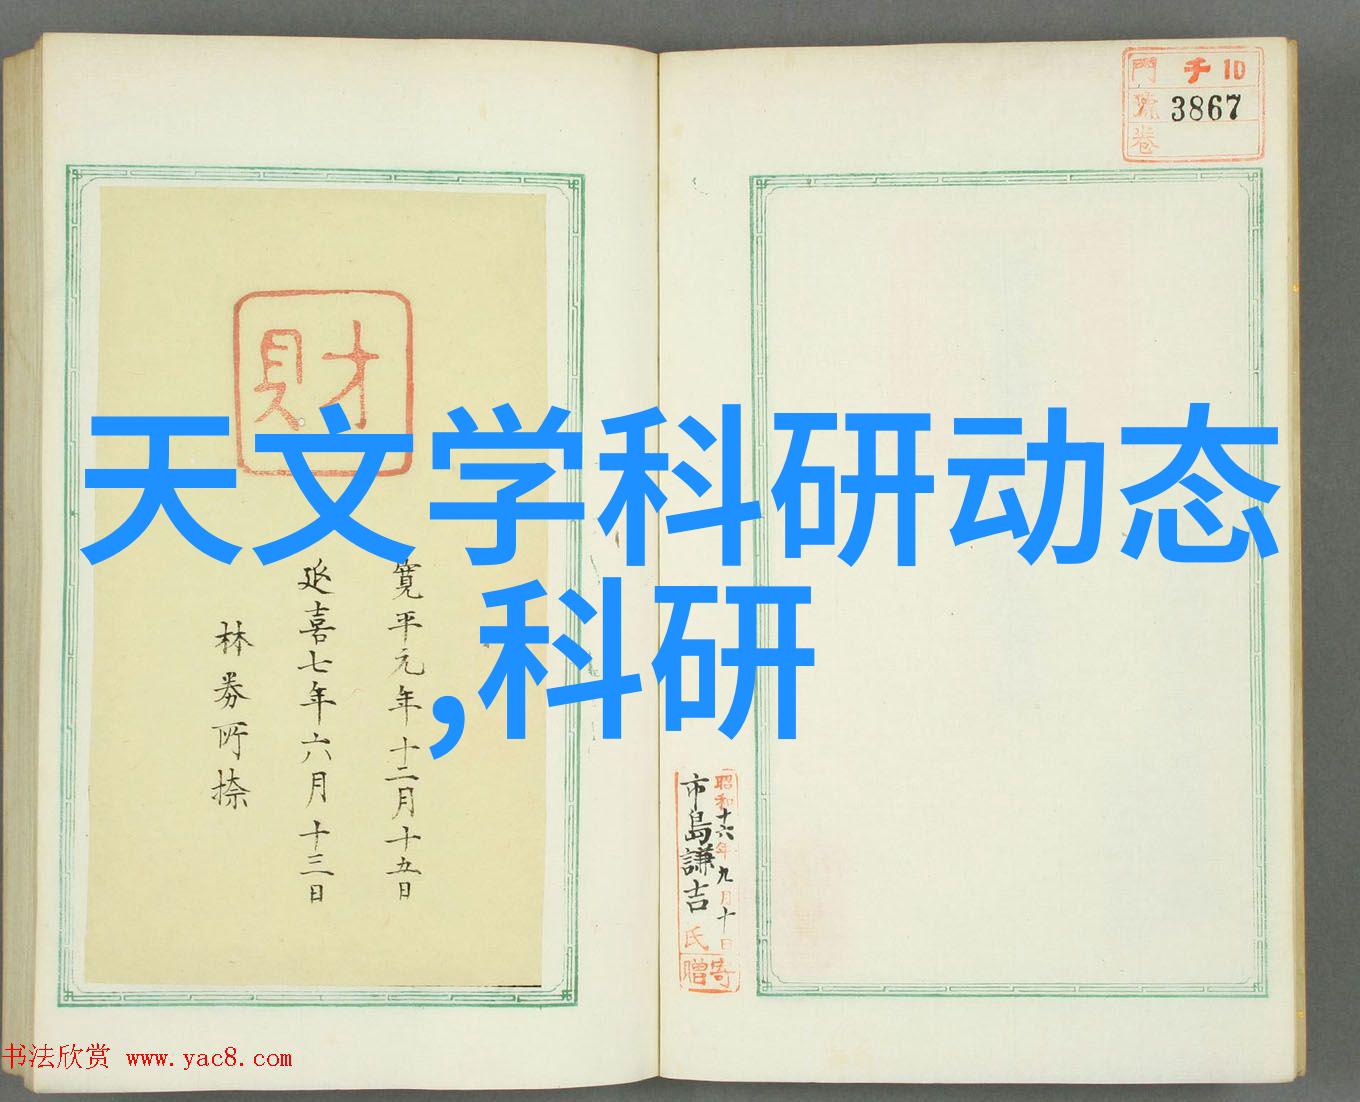 門 チ 10
號 3867
卷
財
天文学科研动态
,科研
寛平元年十二月十五日
延喜七年六月十三日
林券所捺
昭和十六年九月十日
市島謙吉氏寄贈
书法欣赏 www.yac8.com